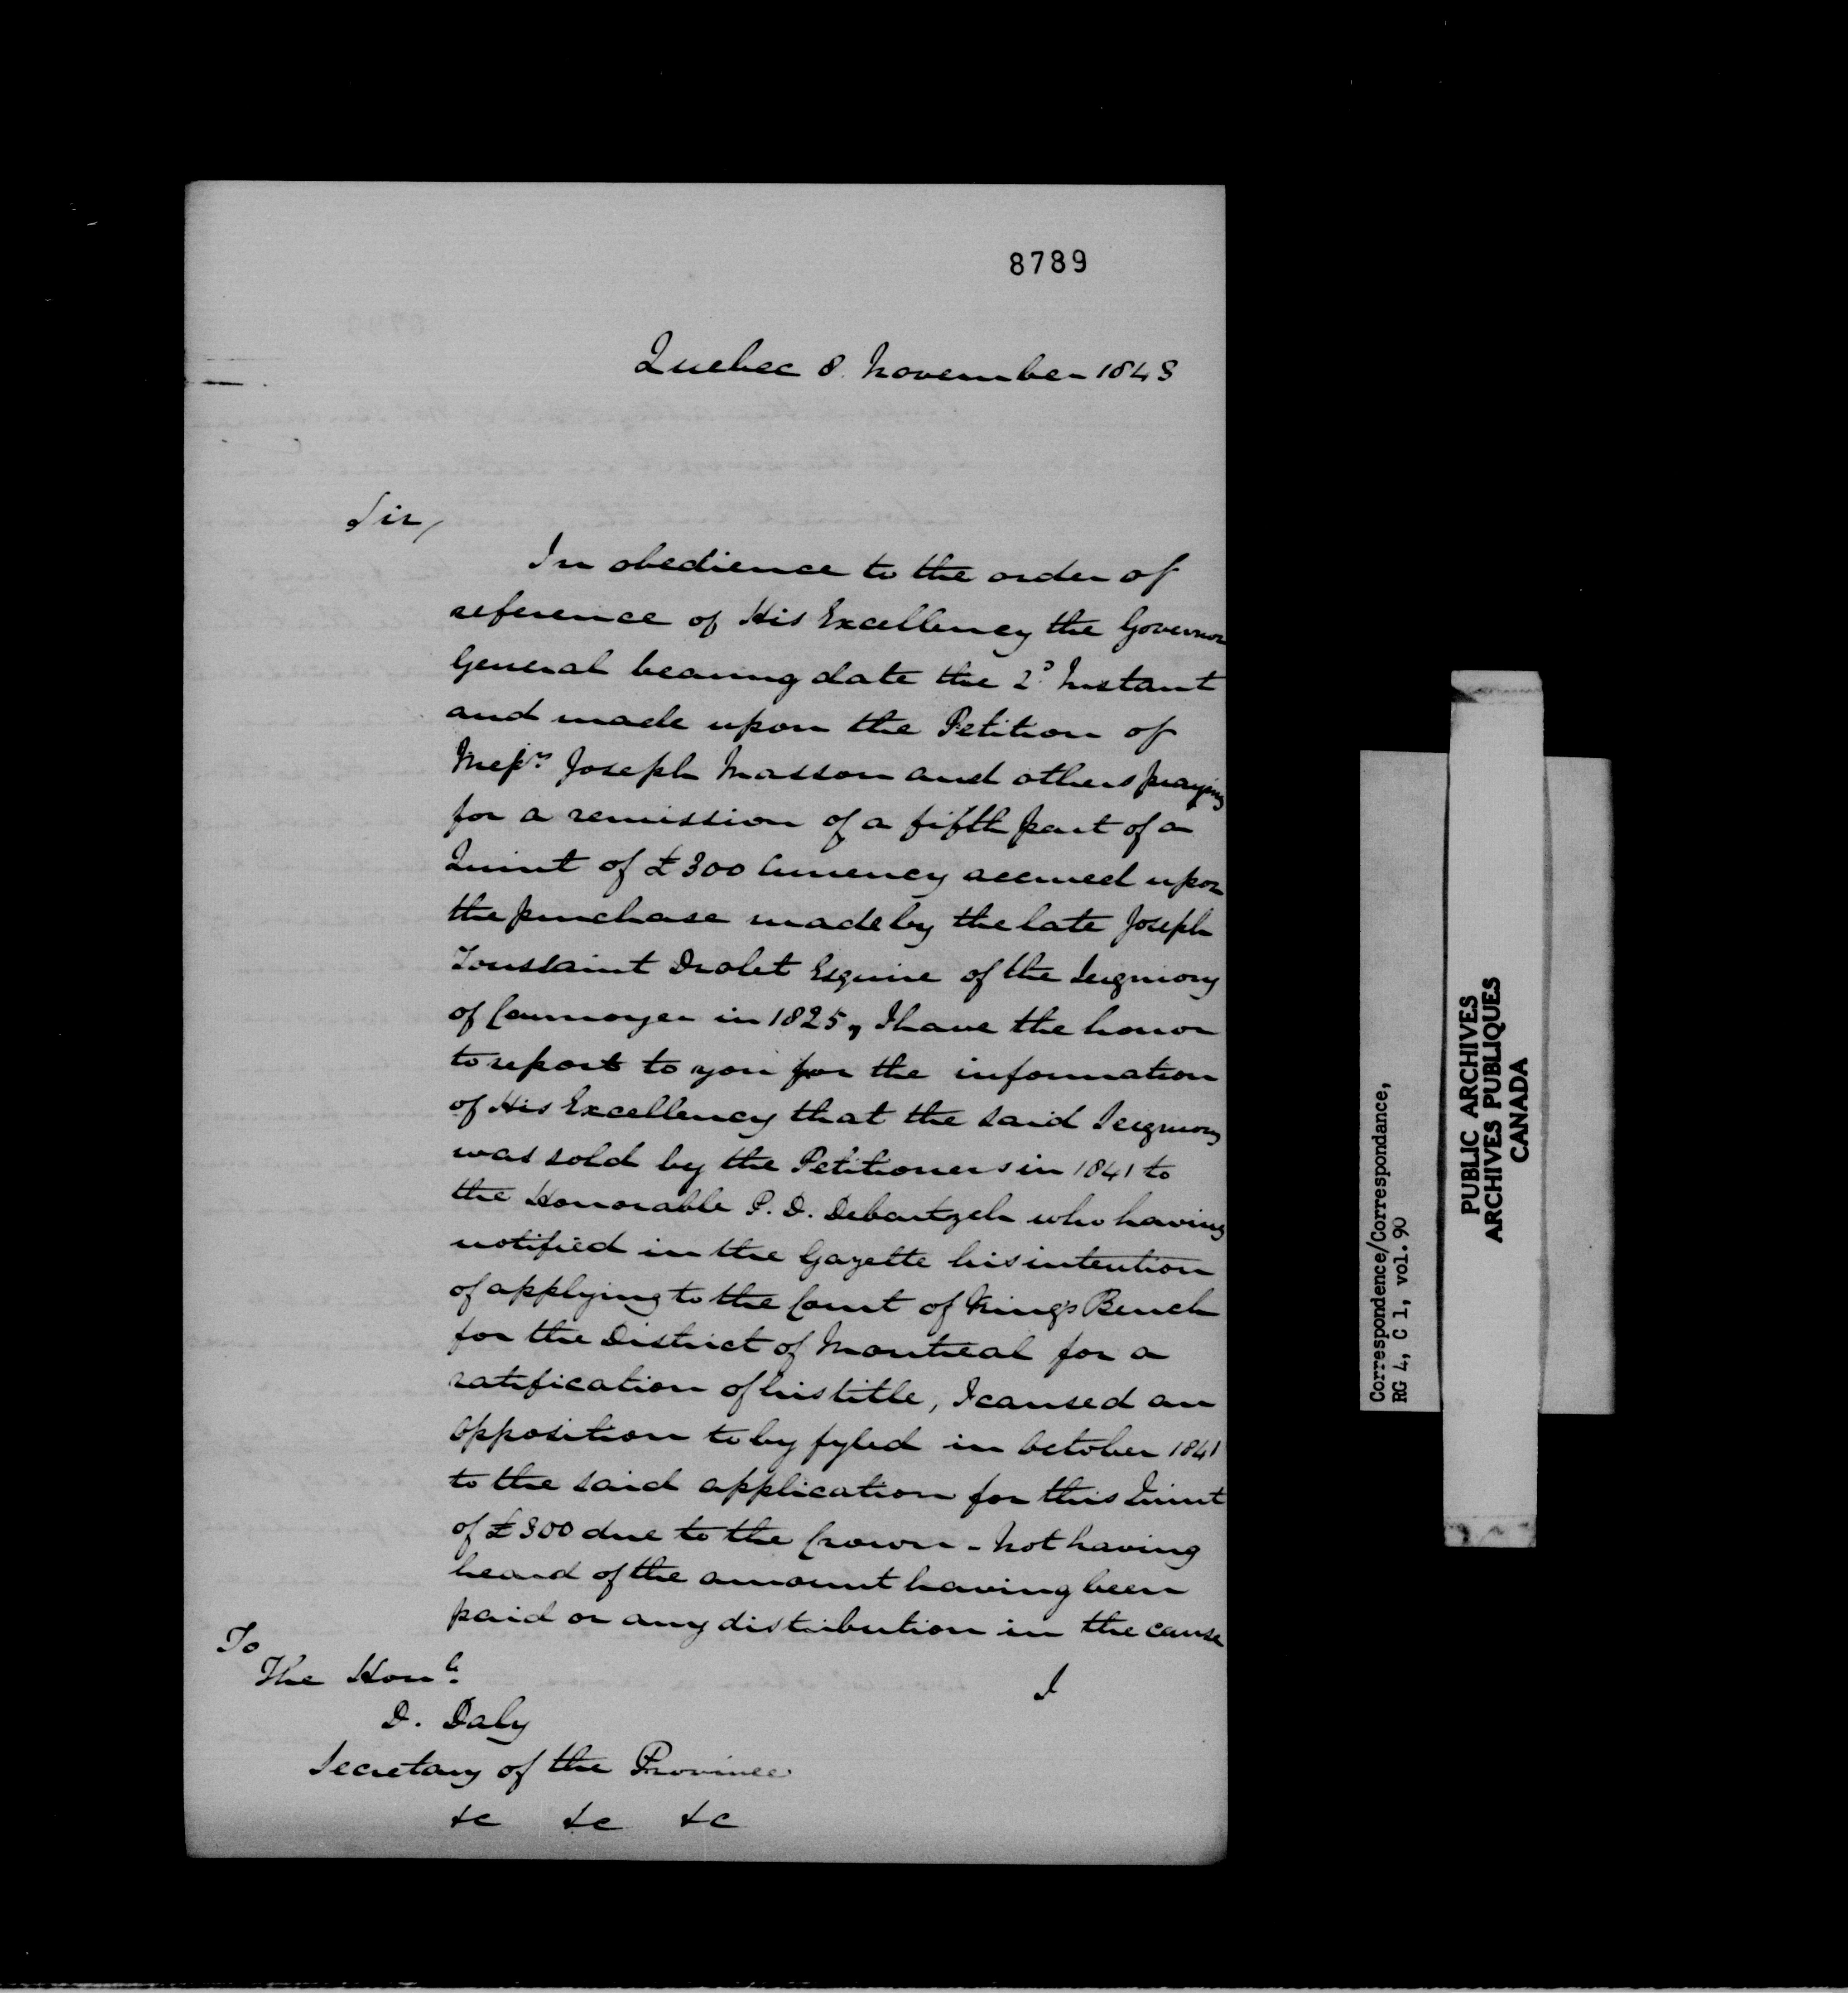 8789
Quebec 8 November 1843
Sir,
In obedience to the order of
reference of His Excellency the Governor
General bearing date the 2d Instant
and made upon the Petition of
Messrs Joseph Masson and others praying
for a remission of a fifth part of a
Quint of £300 Currency accrued upon
the purchase made by the late Joseph
Toussaint Drolet Esquire of the Seigniory
of Cournoyer in 1825, I have the honor
to report to you for the information
of His Excellency that the said Seigniory
was sold by the Petitioners in 1841 to
the Honorable P. D. Debartzch who having
notified in the Gazette his intention
of applying to the Court of King's Bench
for the District of Montreal for a
ratification of his title, I caused an
opposition to by fyled in October 1841
to the said application for this Quint
of £300 due to the Crown - Not having
heard of the amount having been
paid or any distribution in the cause
I
To
The Honble
D. Daly
Secretary of the Province
&c &c &c
Correspondence/Correspondance,
RG 4, C 1, vol. 90
PUBLIC ARCHIVES
ARCHIVES PUBLIQUES
CANADA